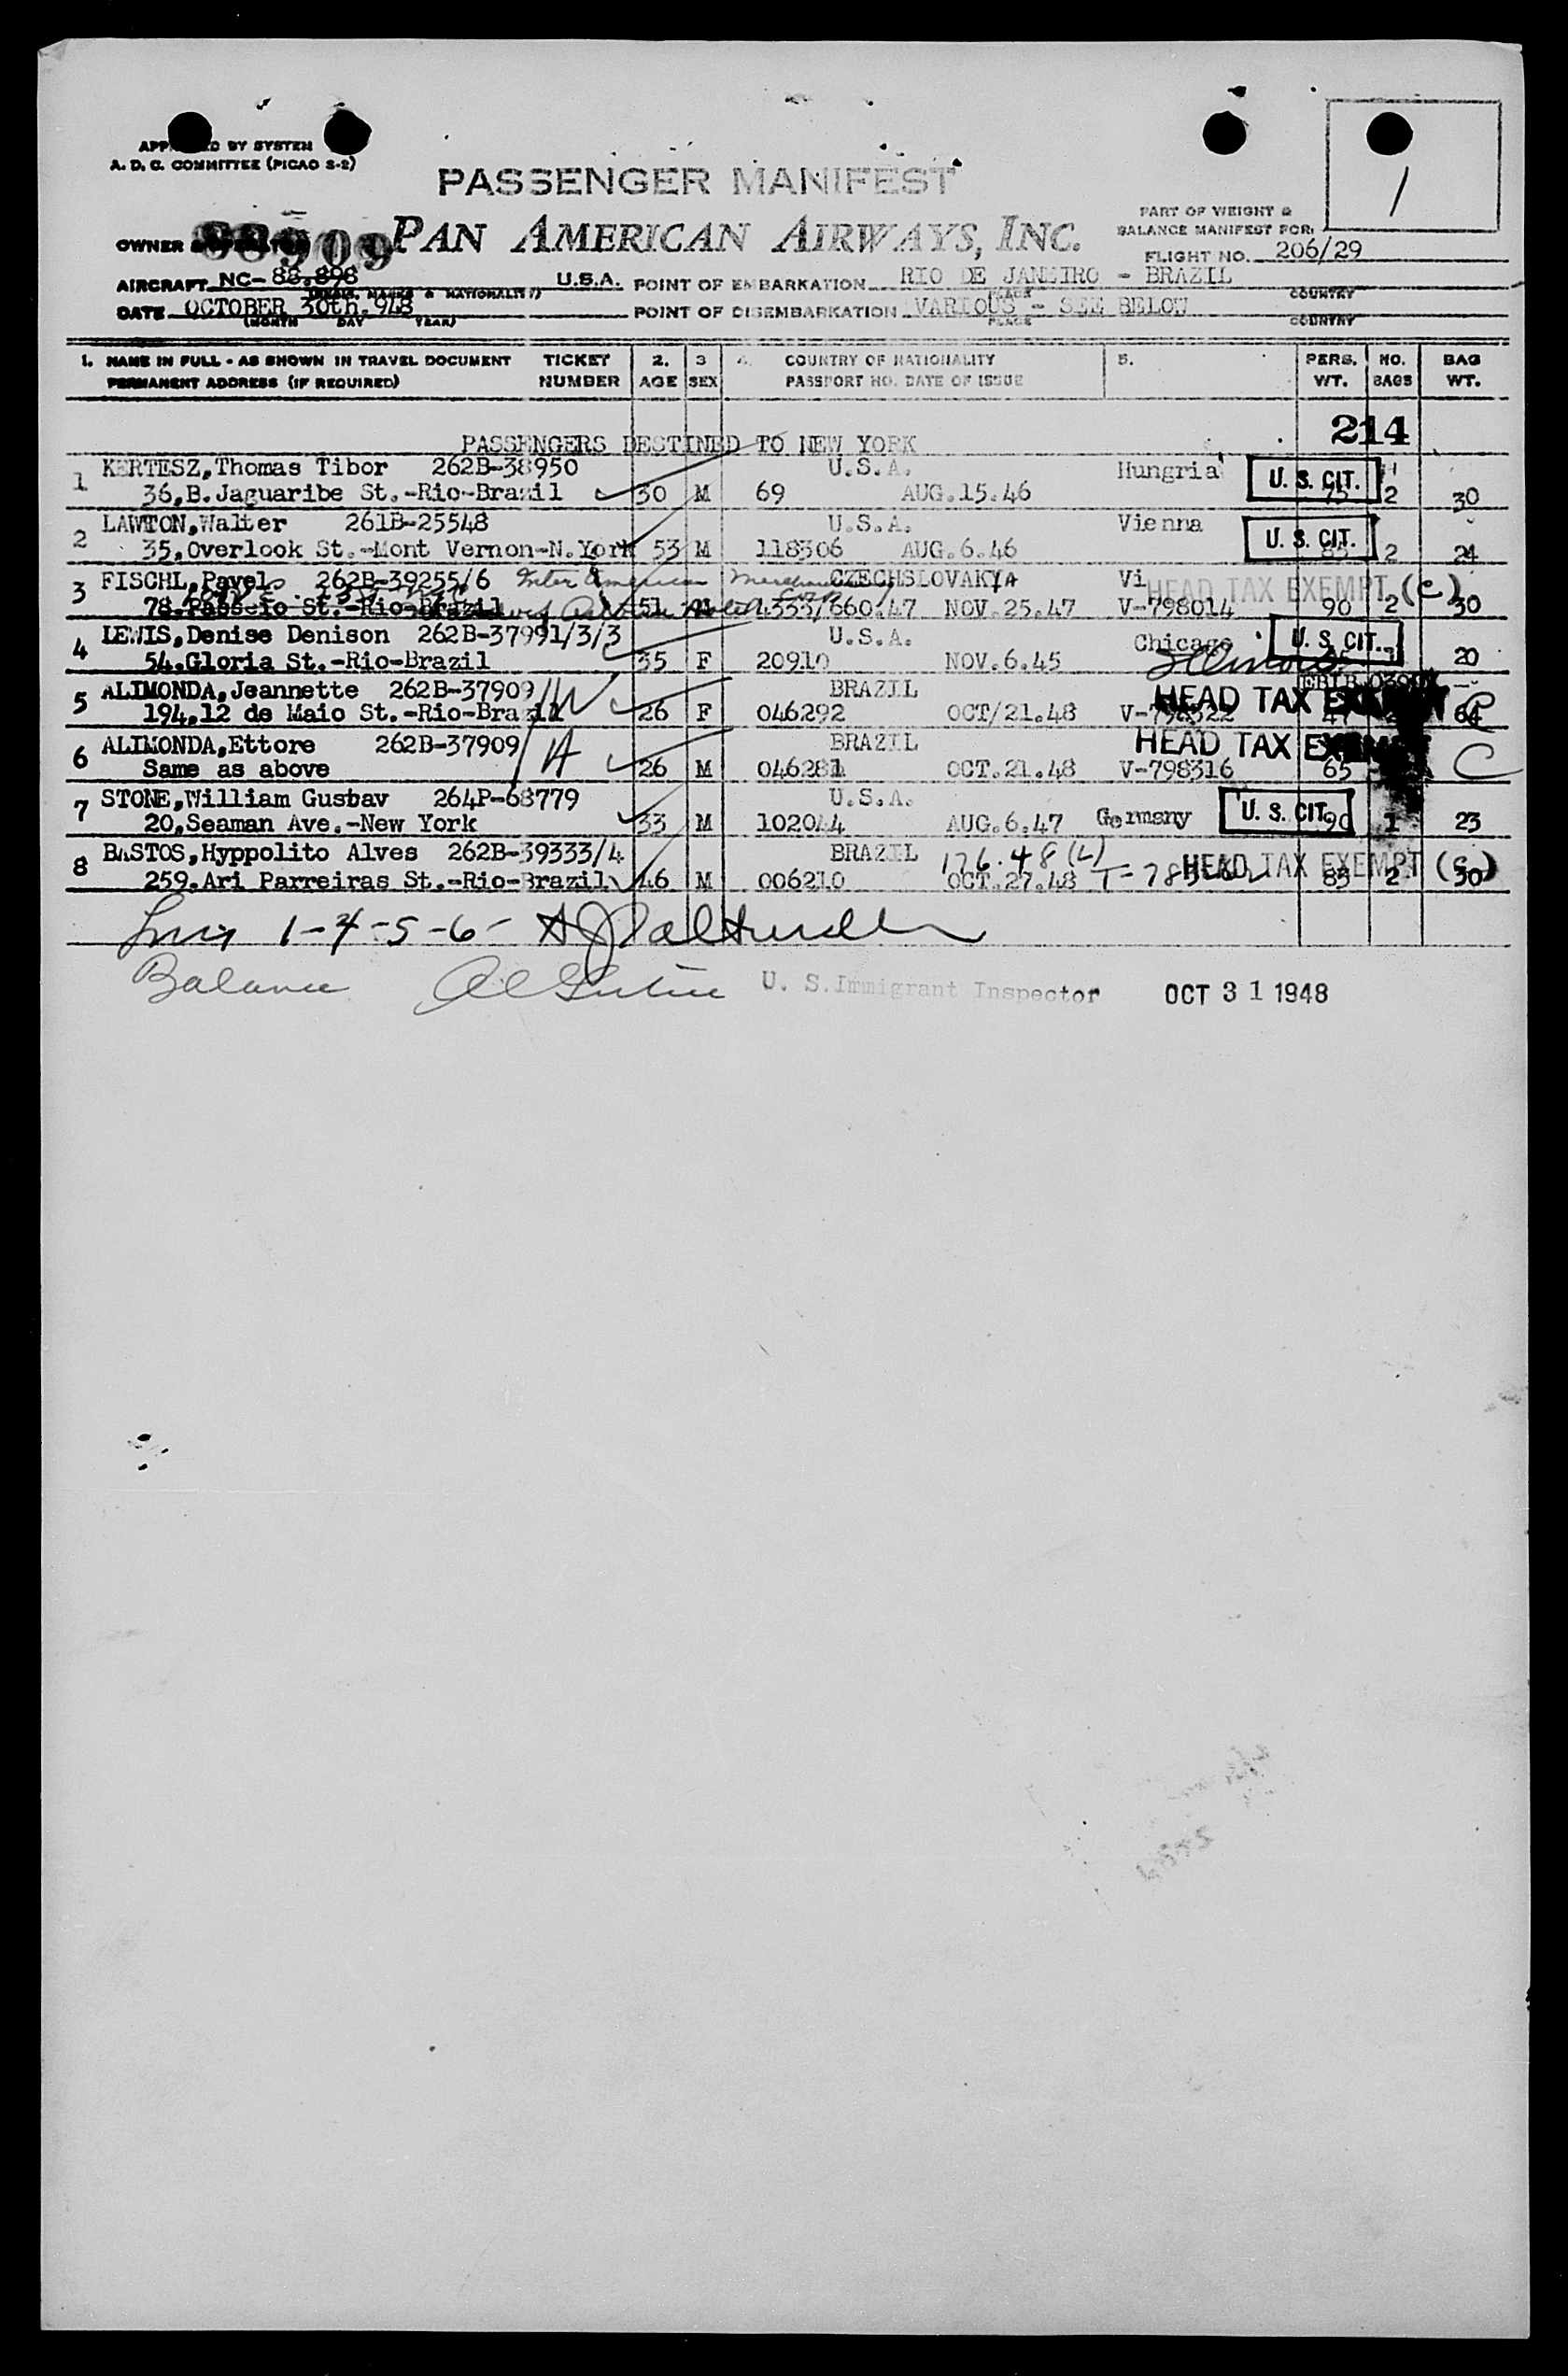 APP D BY SYSTEM
A. D. C. COMMITTEE (PICAO S-2)
PASSENGER MANIFEST
1
PART OF WEIGHT &
BALANCE MANIFEST FOR:
OWNER 88909 PAN AMERICAN AIRWAYS, INC.
FLIGHT NO. 206/29
AIRCRAFT NC-88.898 U.S.A. POINT OF EMBARKATION RIO DE JANEIRO - BRAZIL
MARKS & NATIONALITY) PLACE COUNTRY
DATE OCTOBER 30th.948 POINT OF DISEMBARKATION VARIOUS - SEE BELOW
(MONTH DAY YEAR) PLACE COUNTRY
1. NAME IN FULL - AS SHOWN IN TRAVEL DOCUMENT TICKET 2. 3 4. COUNTRY OF NATIONALITY 5. PERS. NO. BAG
PERMANENT ADDRESS (IF REQUIRED) NUMBER AGE SEX PASSPORT NO. DATE OF ISSUE WT. BAGS WT.
214
PASSENGERS DESTINED TO NEW YORK
1 KERTESZ,Thomas Tibor 262B-38950 U.S.A. Hungria U. S. CIT.
36,B.Jaguaribe St.-Rio-Brazil 30 M 69 AUG.15.46 75 2 30
2 LAWTON,Walter 261B-25548 U.S.A. Vienna U. S. CIT.
35,Overlook St.-Mont Vernon-N.York 53 M 118306 AUG.6.46 2 24
3 FISCHL,Pavel 262B-39255/6 Inter American CZECHSLOVAKYA Vi HEAD TAX EXEMPT (C)
78.Passeio St.-Rio-Brazil 51 M 4333/660.47 NOV.25.47 V-798014 90 2 30
4 LEWIS,Denise Denison 262B-37991/3/3 U.S.A. Chicago U. S. CIT.
54.Gloria St.-Rio-Brazil 35 F 20910 NOV.6.45 Illinois 20
5 ALIMONDA,Jeannette 262B-37909/W BRAZIL HEAD TAX
194,12 de Maio St.-Rio-Brazil 26 F 046292 OCT/21.48 V-798322 47 64 C
6 ALIMONDA,Ettore 262B-37909/H BRAZIL HEAD TAX EXEMPT C
Same as above 26 M 046281 OCT.21.48 V-798316 65
7 STONE,William Gustav 264P-68779 U.S.A. Germany U. S. CIT.
20,Seaman Ave.-New York 33 M 102044 AUG.6.47 90 1 23
8 BASTOS,Hyppolito Alves 262B-39333/4 BRAZIL 176.48(L) HEAD TAX EXEMPT (C)
259.Ari Parreiras St.-Rio-Brazil 46 M 006210 OCT.27.48 85 2 30
1-4-5-6-
Balance U. S. Immigrant Inspector OCT 31 1948